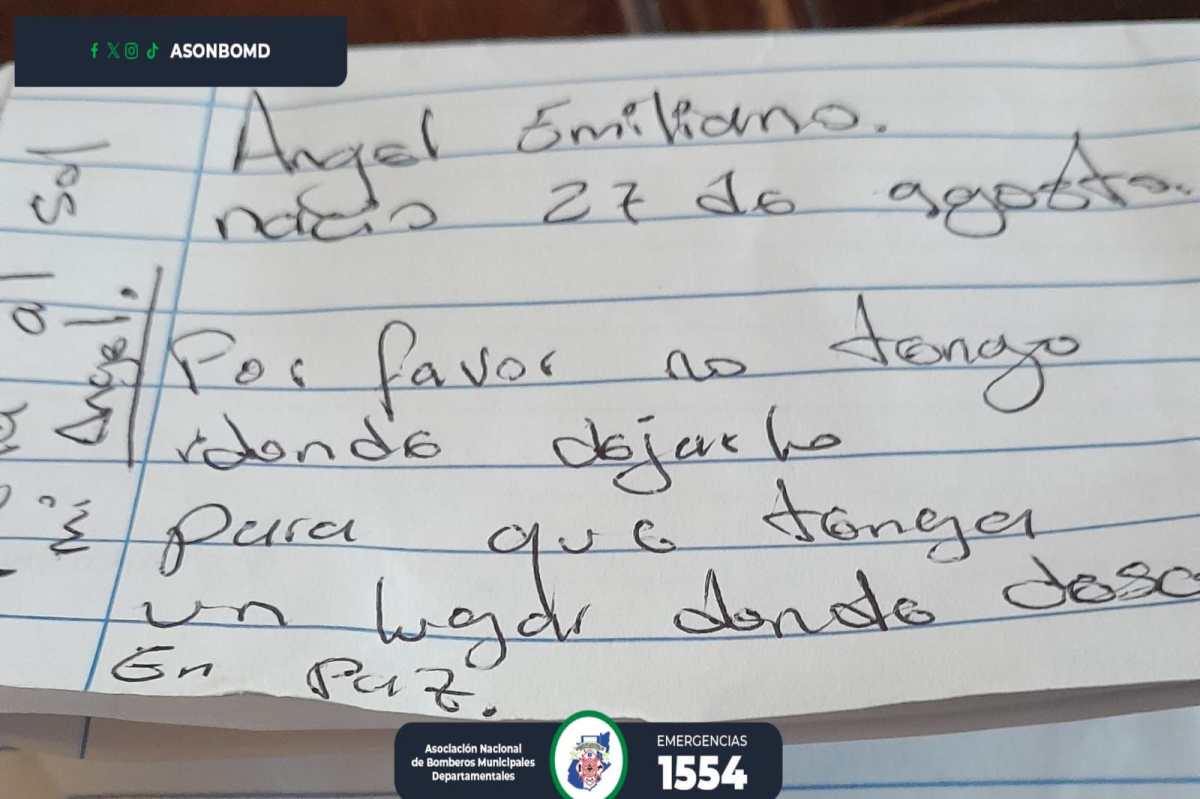 ASONBOMD
Angel Emiliano.
nacio 27 de agosto.
Por favor no tengo
donde dejarlo
para que tenga
un lugar donde desc
En Paz.
Angel.
Asociación Nacional
de Bomberos Municipales
Departamentales
EMERGENCIAS
1554